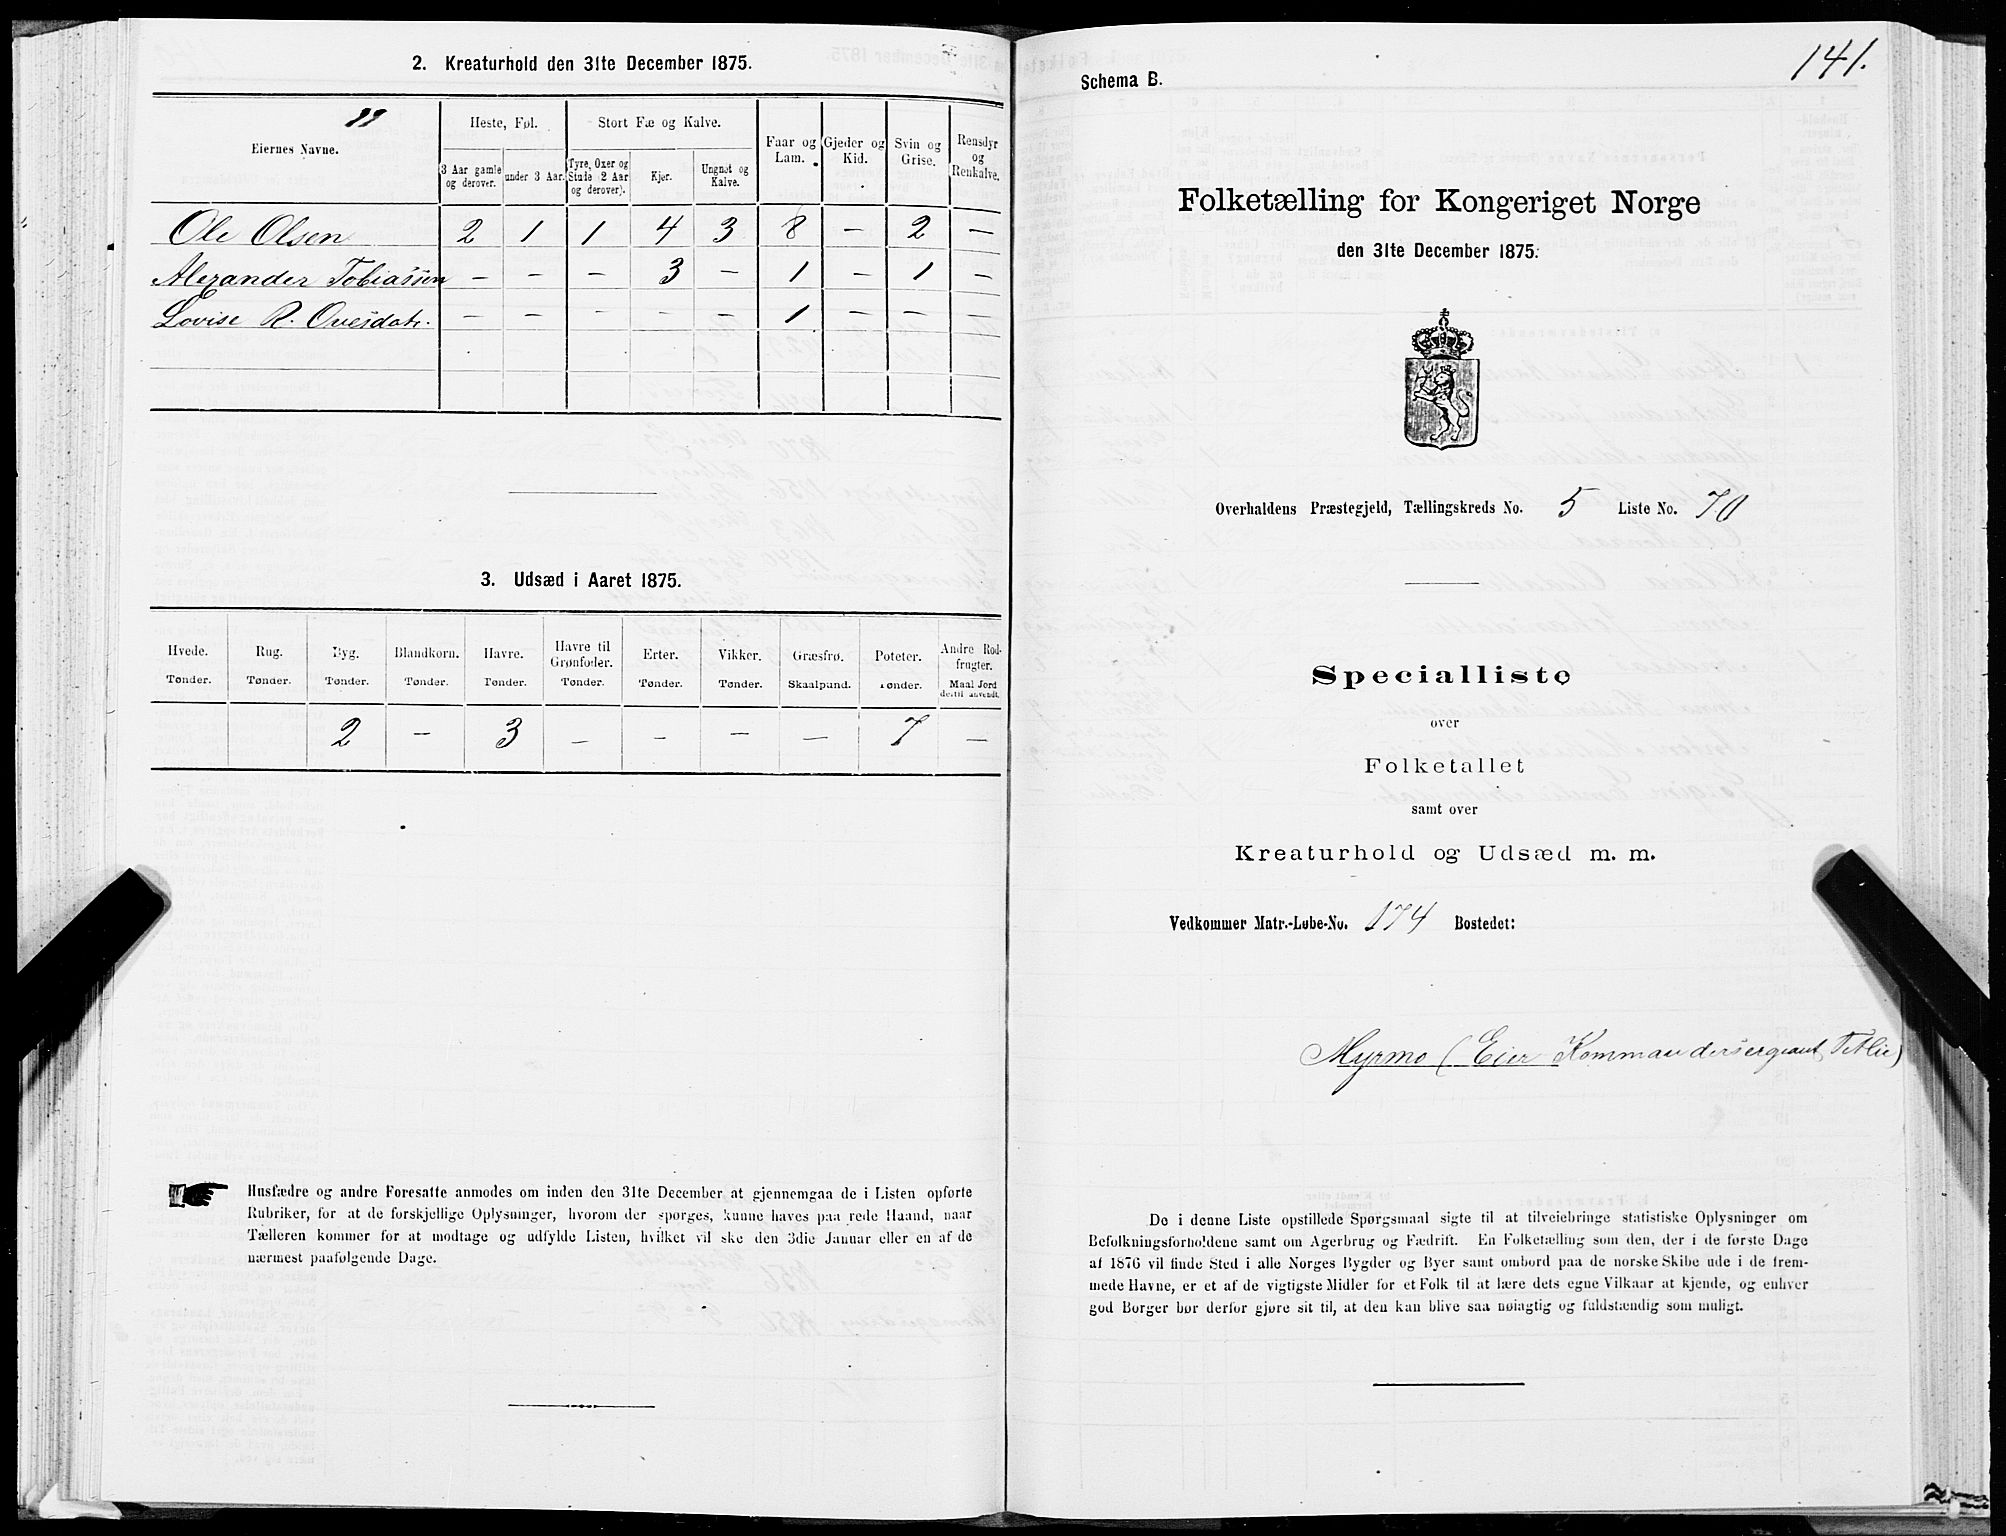 2. Kreaturhold den 31te December 1875.
Eiernes Navne.
Heste, Føl.
Stort Fæ og Kalve.
Faar og Lam.
Gjeder og Kid.
Svin og Grise.
Rensdyr og Renkalve.
3 Aar gamle og derover.
under 3 Aar.
Tyre, Oxer og Stude (2 Aar og derover).
Kjør.
Ungnøt og Kalve.
Ole Olsen 2 1 1 4 3 8 — 2 —
Alexander Tobiassen — — — 3 — 1 — 1 —
Lovise R. Ovesdatr. — — — — — 1 — — —
3. Udsæd i Aaret 1875.
Hvede. Rug. Byg. Blandkorn. Havre. Havre til Grønfoder. Erter. Vikker. Græsfrø. Poteter. Andre Rodfrugter.
Tønder. Tønder. Tønder. Tønder. Tønder. Tønder. Tønder. Tønder. Skaalpund. Tønder. Maal Jord dertil anvendt.
2 — 3 — — — — 7 —
Husfædre og andre Foresatte anmodes om inden den 31te December at gjennemgaa de i Listen opførte
Rubriker, for at de forskjellige Oplysninger, hvorom der spørges, kunne haves paa rede Haand, naar
Tælleren kommer for at modtage og udfylde Listen, hvilket vil ske den 3die Januar eller en af de
nærmest paafølgende Dage.
141.
Schema B.
Folketælling for Kongeriget Norge
den 31te December 1875.
Overhaldens Præstegjeld, Tællingskreds No. 5 Liste No. 70
Specialliste
over
Folketallet
samt over
Kreaturhold og Udsæd m. m.
Vedkommer Matr.-Løbe-No. 174 Bostedet:
Myrmo (Eier Kommandersergeant Tetlie)
De i denne Liste opstillede Spørgsmaal sigte til at tilveiebringe statistiske Oplysninger om
Befolkningsforholdene samt om Agerbrug og Fædrift. En Folketælling som den, der i de første Dage
af 1876 vil finde Sted i alle Norges Bygder og Byer samt ombord paa de norske Skibe ude i de frem-
mede Havne, er et af de vigtigste Midler for et Folk til at lære dets egne Vilkaar at kjende, og enhver
god Borger bør derfor gjøre sit til, at den kan blive saa nøiagtig og fuldstændig som muligt.